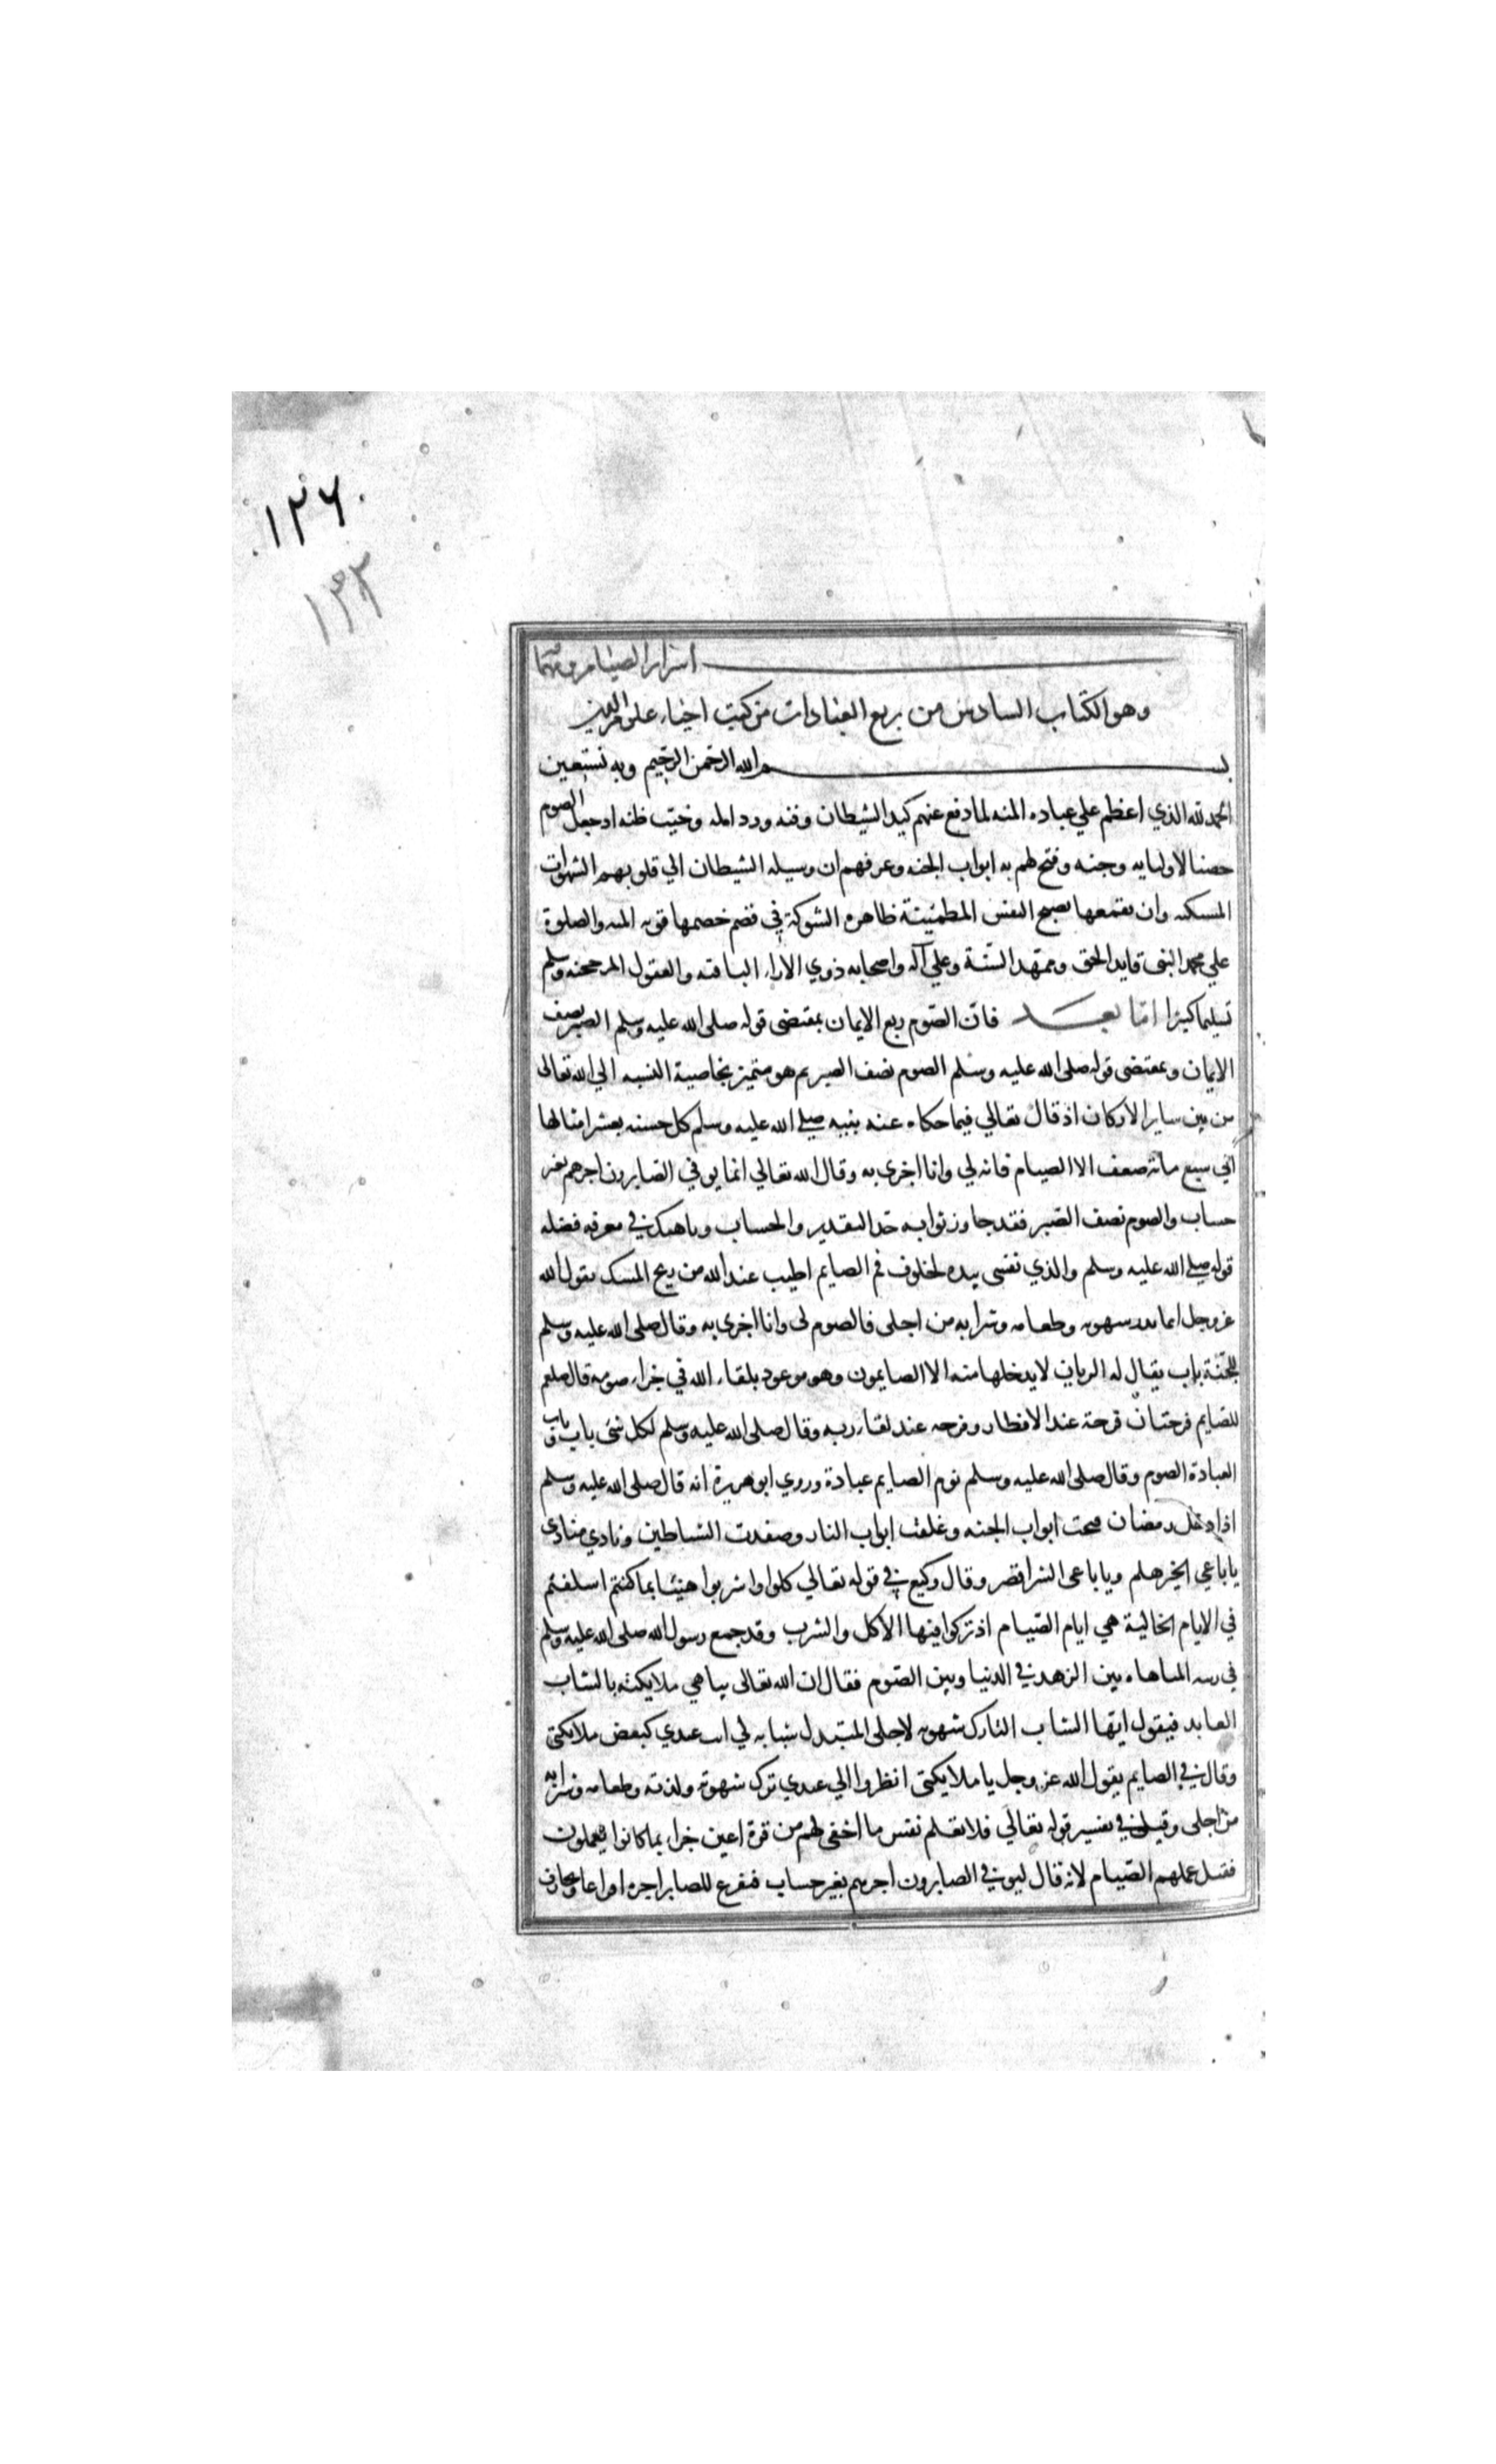 ١٢٦
١٣٣
اسرار الصيام ومهماته
وهو الكتاب السادس من ربع العبادات من كتب احياء علوم الدين
بسم الله الرحمن الرحيم وبه نستعين
الحمد لله الذي اعظم علي عباده المنه لما دفع عنهم كيد الشيطان وفنه ورد امله وخيب ظنه اذ جعل الصوم
حصنا لاوليايه وجنه وفتح لهم به ابواب الجنه وعرفهم ان وسيله الشيطان الي قلوبهم الشهوات
المستكنه وان بقمعها تصبح النفس المطمئينة ظاهره الشوكة في قصم خصمها قويه المنه والصلوة
علي محمد النبى قايد الحق وممهد السنة وعلي آله واصحابه ذوي الاراء الثاقبه والعقول المرجحنه وسلم
تسليما كثيرا اما بعد فان الصوم ربع الايمان بمقتضى قوله صلى الله عليه وسلم الصبر نصف
الايمان وبمقتضى قوله صلى الله عليه وسلم الصوم نصف الصبر ثم هو متميز بخاصية النسبه الي الله تعالى
من بين ساير الاركان اذ قال تعالي فيما حكاه عنه نبيه صلي الله عليه وسلم كل حسنه بعشر امثالها
الي سبع مائة ضعف الا الصيام فانه لي وانا اجزى به وقال الله تعالي انما يوفي الصابرون اجرهم بغير
حساب والصوم نصف الصبر فقد جاوز ثوابه حد التقدير والحساب وناهيك في معرفه فضله
قوله صلي الله عليه وسلم والذي نفسى بيده لخلوف فم الصايم اطيب عند الله من ريح المسك يقول الله
عز وجل انما يذر شهوته وطعامه وشرابه من اجلى فالصوم لى وانا اجزى به وقال صلى الله عليه وسلم
للجنة باب يقال له الريان لا يدخلها منه الا الصايمون وهو موعود بلقاء الله في جزاء صومه قال صلعم
للصايم فرحتان فرحة عند الافطار وفرحه عند لقاء ربه وقال صلى الله عليه وسلم لكل شى باب وباب
العبادة الصوم وقال صلى الله عليه وسلم نوم الصايم عبادة وروي ابو هريرة انه قال صلى الله عليه وسلم
اذا دخل رمضان فتحت ابواب الجنه وغلقت ابواب النار وصفدت الشياطين ونادي منادى
يا باغي الخير هلم ويا باغى الشر اقصر وقال وكيع في قوله تعالي كلوا واشربوا هنيئا بما كنتم اسلفتم
في الايام الخالية هي ايام الصيام اذ تركوا فيها الاكل والشرب وقد جمع رسول الله صلى الله عليه وسلم
في رتبه المباهاه بين الزهد في الدنيا وبين الصوم فقال ان الله تعالى يباهي ملايكته بالشاب
العابد فيقول ايها الشاب التارك شهوته لاجلى المبتدل شبابه لي انت عندي كبعض ملايكتى
وقال في الصايم يقول الله عز وجل يا ملايكتى انظروا الي عبدي ترك شهوته ولذته وطعامه وشرابه
من اجلى وقيل في تفسير قوله تعالي فلا تعلم نفس ما اخفى لهم من قرة اعين جزاء بما كانوا يعملون
فقيل عملهم الصيام لانه قال ليوفي الصابرون اجرهم بغير حساب فيفرغ للصابر اجره افراغا ويجازف